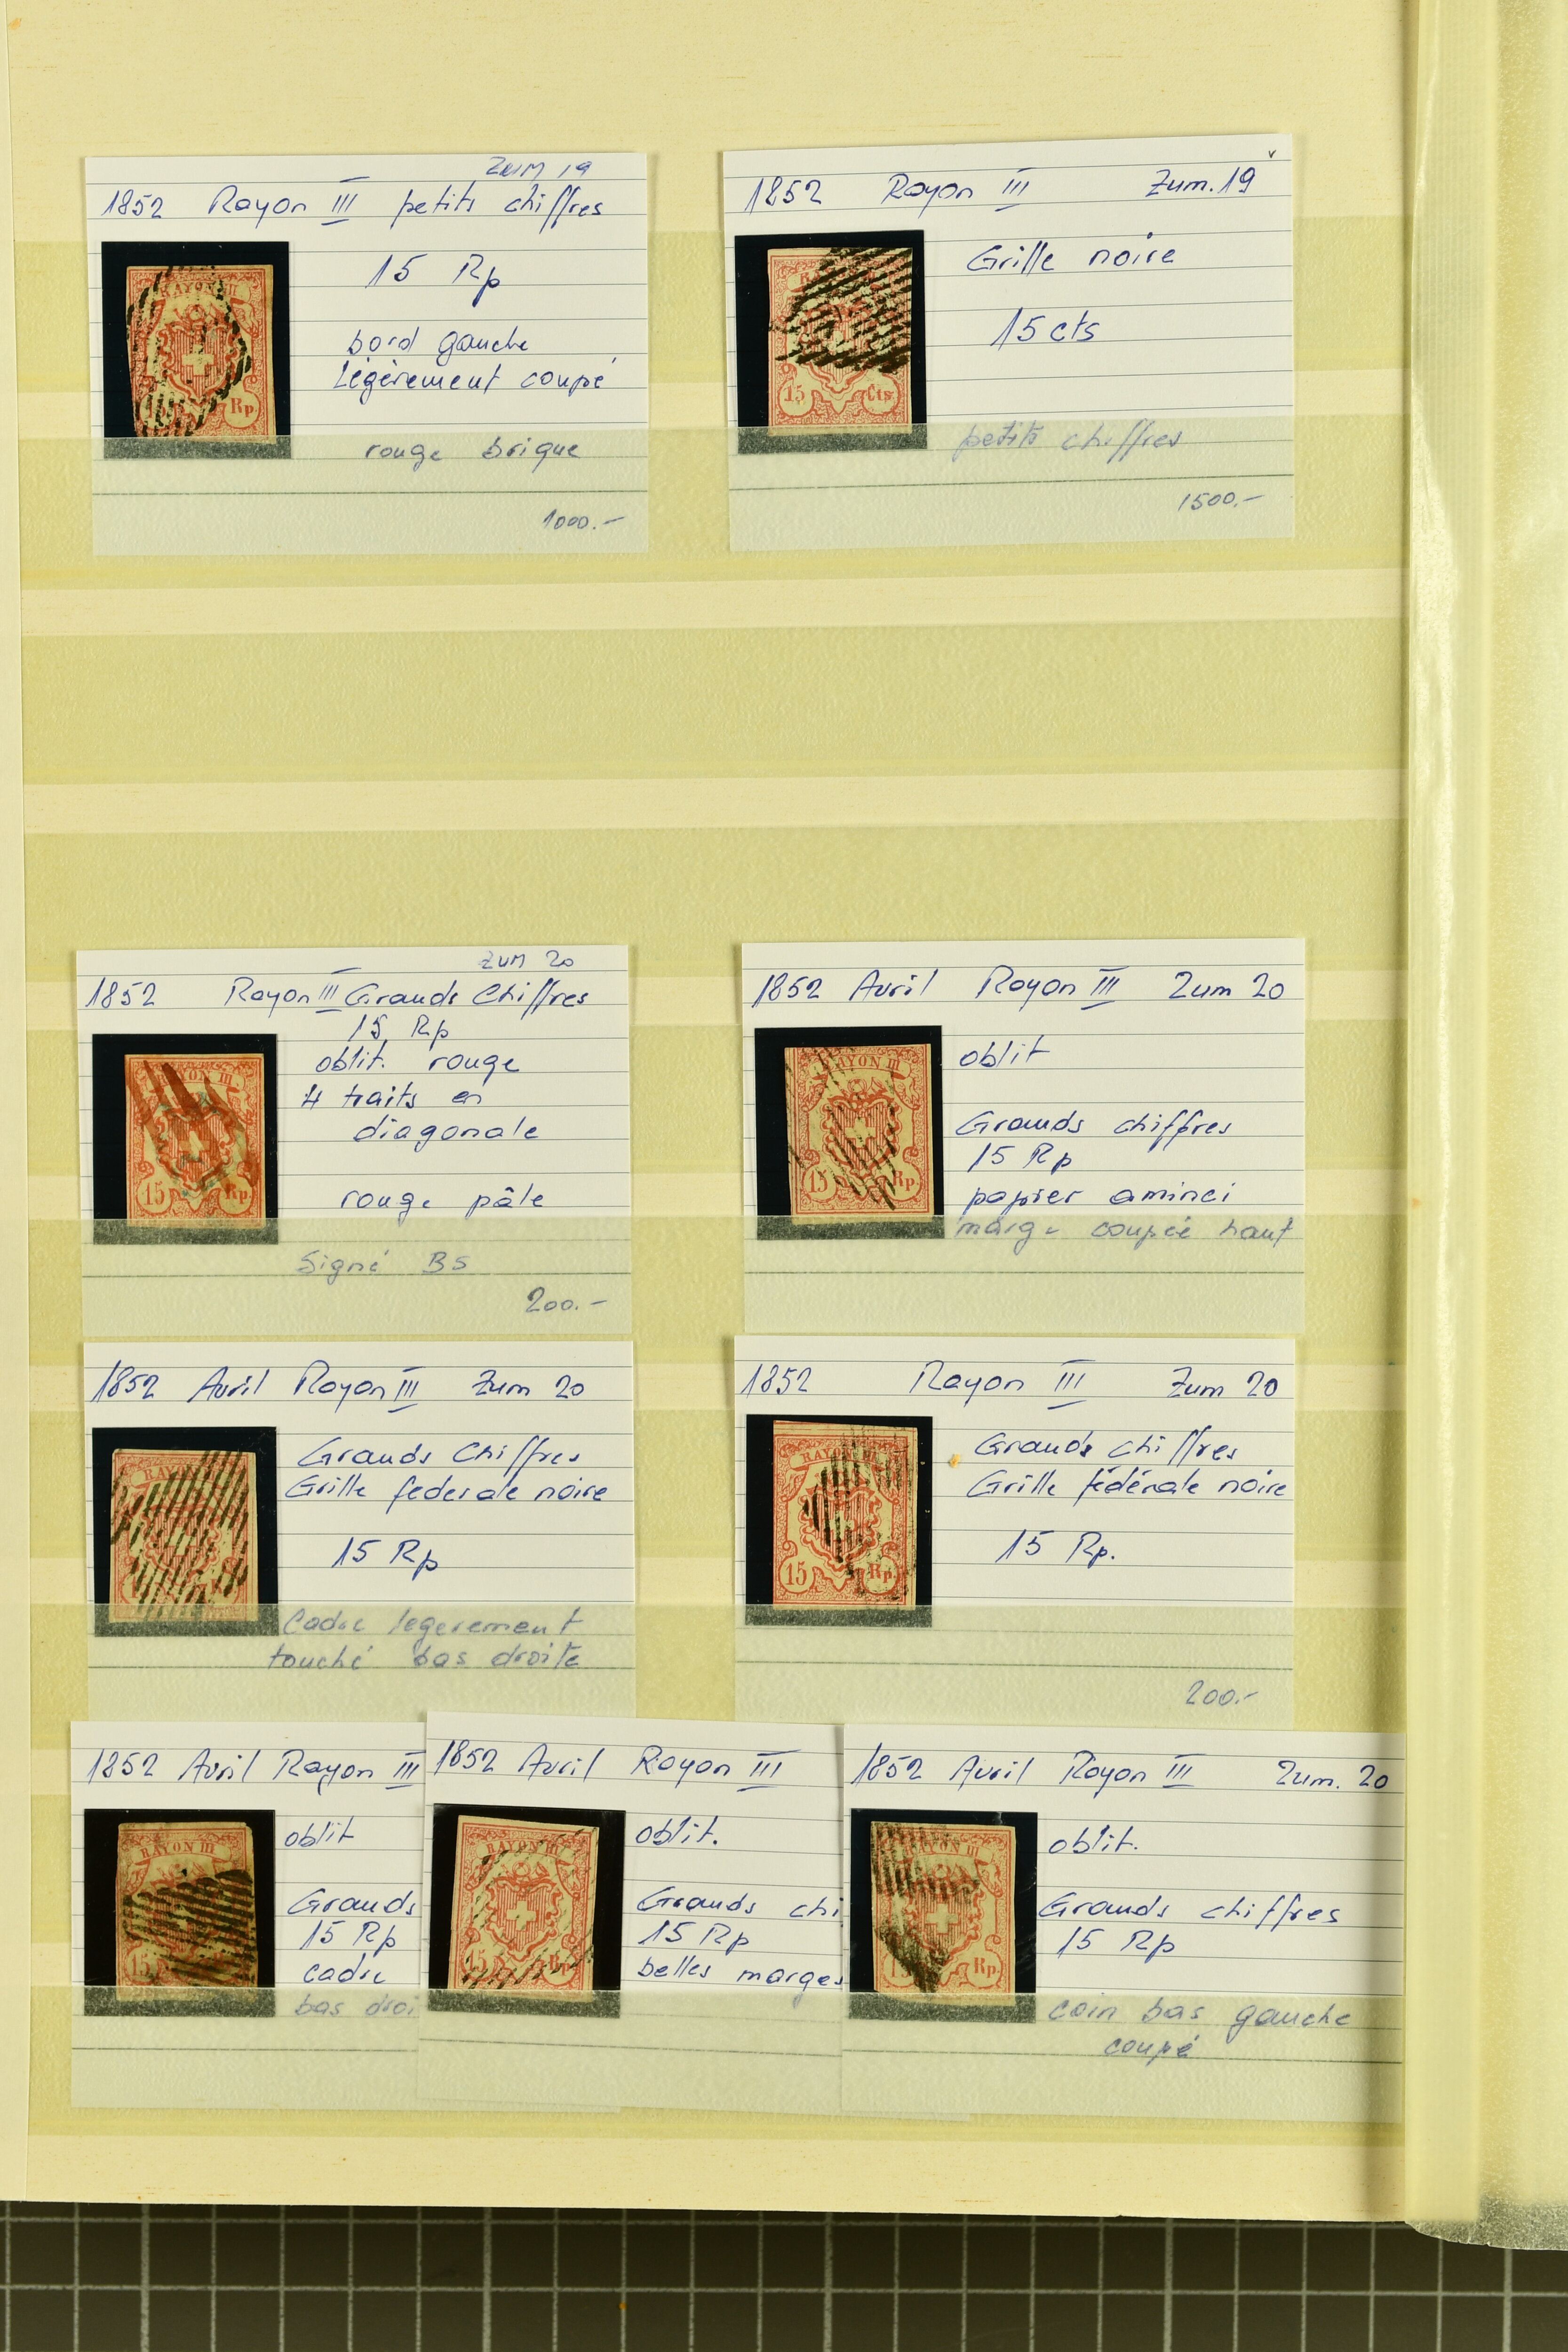 ZUM 19
1852 Rayon III petits chiffres
15 Rp
bord gauche
légèrement coupé
rouge brique
1000.-
RAYON III
Rp.
1852 Rayon III Zum. 19
Grille noire
15 cts
petits chiffres
1500.-
15 Cts.
ZUM 20
1852 Rayon III Grands Chiffres
15 Rp
oblit. rouge
4 traits en
diagonale
rouge pâle
Signé BS
200.-
RAYON III.
15 Rp.
1852 Avril Rayon III Zum 20
oblit
Grands chiffres
15 Rp
papier aminci
marge coupée haut
RAYON III
15 Rp.
1852 Avril Rayon III Zum 20
Grands Chiffres
Grille federale noire
15 Rp
Cadre legerement
touché bas droite
1852 Rayon III Zum 20
Grands chiffres
Grille fédérale noire
15 Rp.
200.-
RAYON
15 Rp.
1852 Avril Rayon III
oblit
Grands
15 Rp
cadre
bas droi
RAYON III
15
1852 Avril Rayon III
oblit.
Grands chi
15 Rp
belles marges
RAYON III
15 Rp
1852 Avril Rayon III Zum. 20
oblit.
Grands chiffres
15 Rp
coin bas gauche
coupé
RAYON III
Rp.